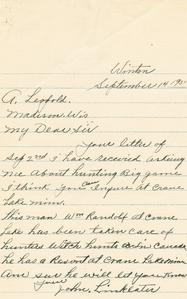 Winton
September 14 192
A. Leopold.
Madison. Wis
My Dear Sir
Your letter of
Sep 2nd I have received asking
me about hunting Big game
I think you can Inquire at Crane
Lake minn.
This man Wm Randolf at Crane
Lake has been taken care of
hunters Which hunts in Canada
he has a Resort at Crane Lake minn
Am sure he will let you Know
Yours
John. Linklater